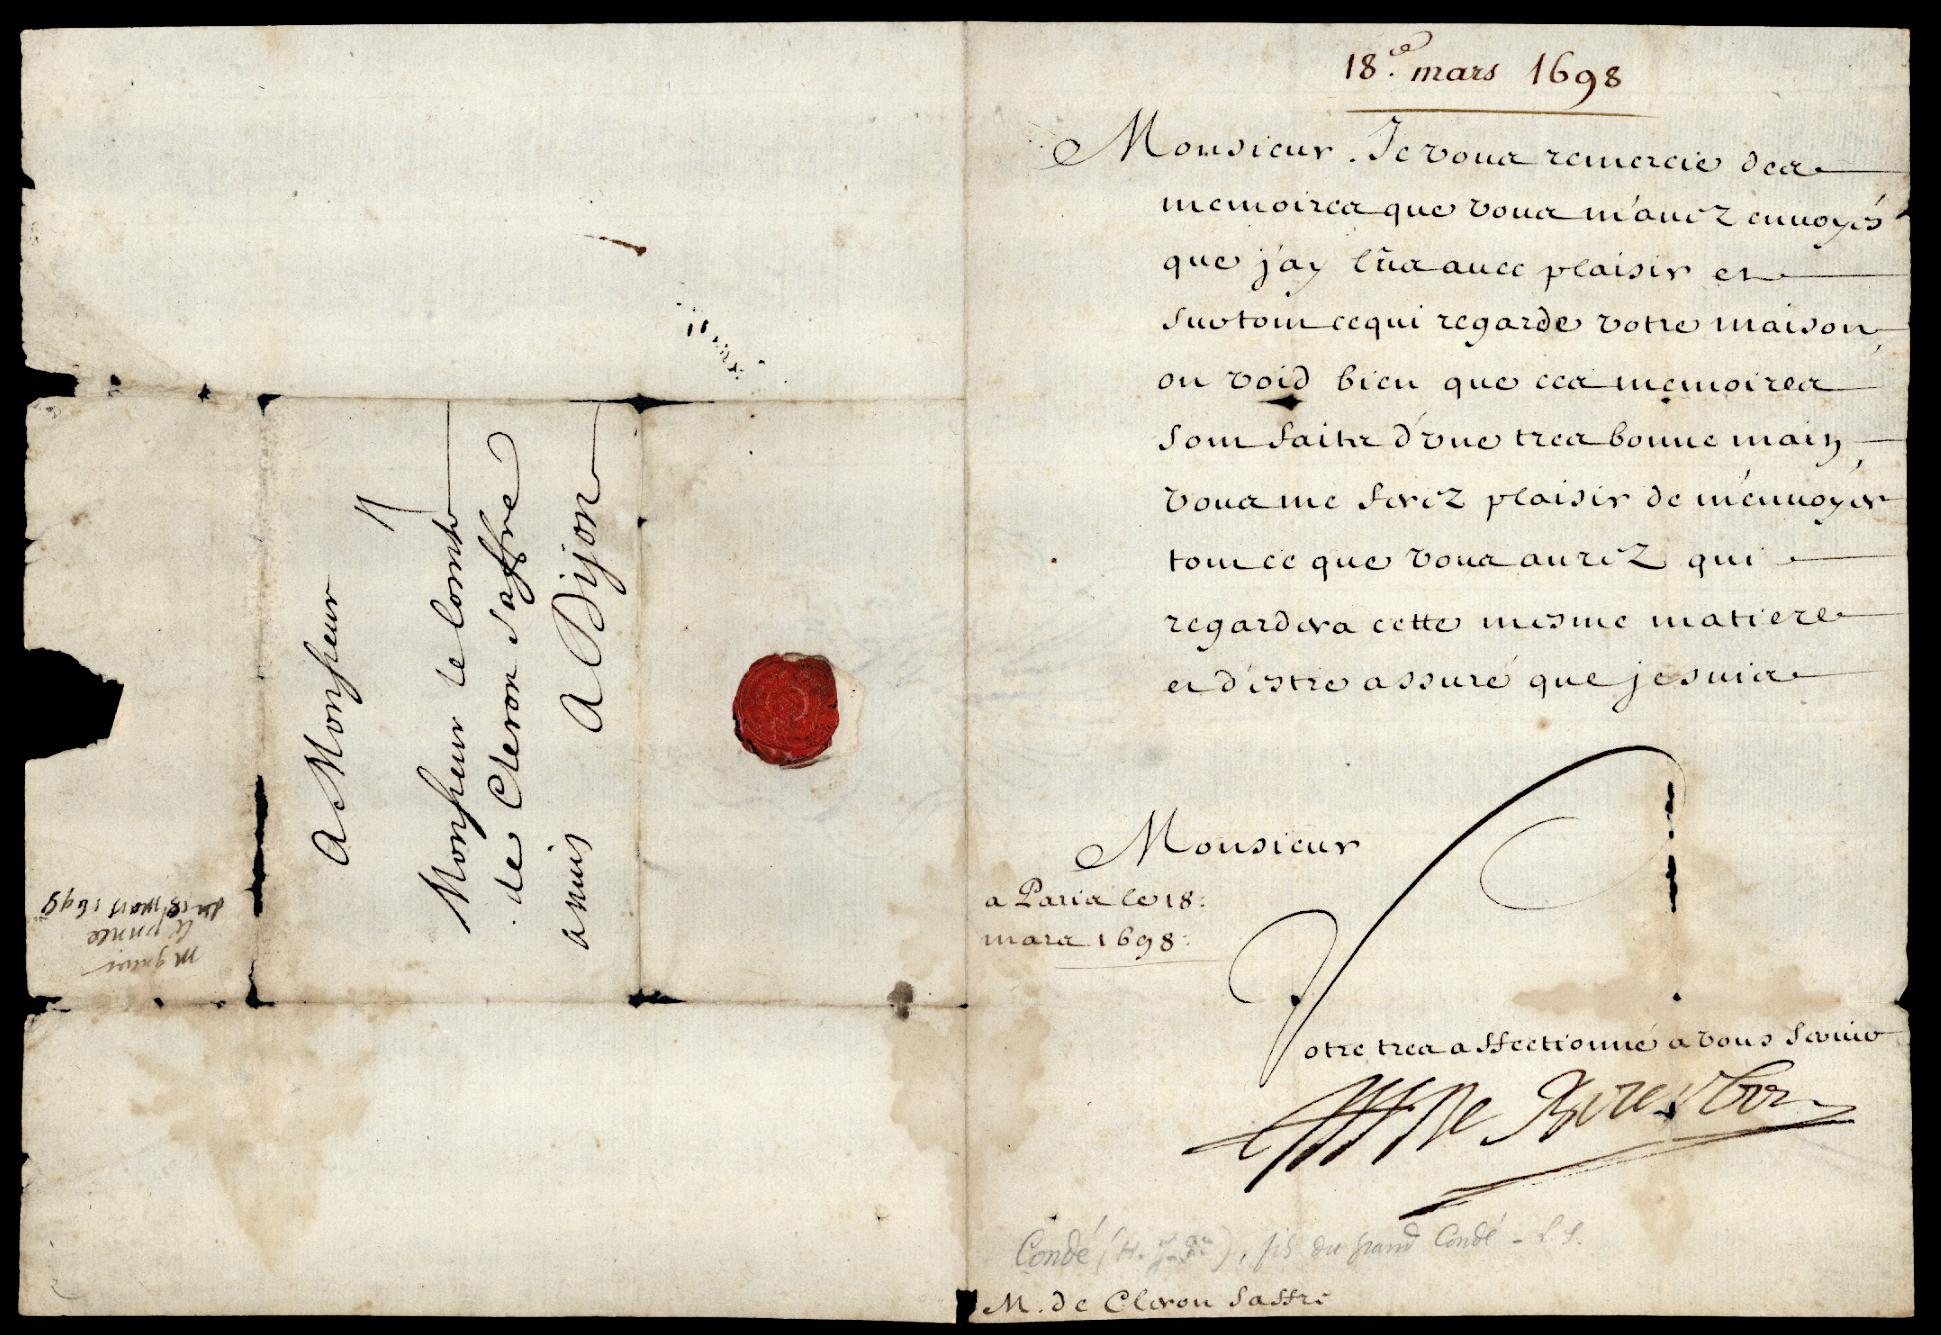 18.e mars 1698
Monsieur. Je vous remercie des
memoires que vous m'auez enuoyés
que j'ay lûs auec plaisir et
surtout cequi regarde votre maison,
on void bien que ces memoires
sont faits d'vne tres bonne main,
vous me ferez plaisir de m'enuoyer
tout ce que vous aurez qui
regardera cette mesme matiere
et d'estre assuré que je suis
Monsieur
a Paris le 18:
mars 1698:
Votre tres affectionné a vous seruir
de Bourbon
Condé (H. J.), fils du grand Condé - L. S.
M. de Cleron Saffre
A Monsieur
Monsieur le Comte
de Cleron Saffre
A Dijon
le prince
du 18 mars 1698